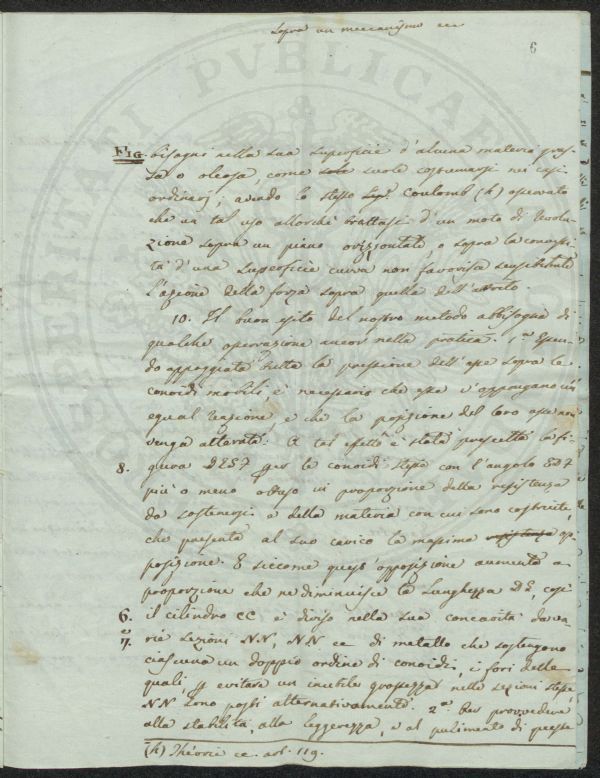 sopra un meccanismo ecc
6
FIG. bisogni nella sua superficie d'alcuna materia gras-
sa o oleosa, come suole costumarsi nei casi
ordinarj; avendo lo stesso Sigr. Coulomb (h) osservato
che un tal uso allorchè trattasi d'un moto di rivolu-
zione sopra un piano orizzontale o sopra la convessi-
tà d'una superficie curva non favorisce sensibilmente
l'azione della forza sopra quella dell'attrito.
10. Il buon esito del nostro metodo abbisogna di
qualche operazione ancor nella pratica. 1.a Essen-
do appoggiata tutta la pressione dell'asse sopra le
conoidi mobili, è necessario che esse v'oppongano un
egual reazione, e che la posizione del loro asse non
venga alterata. A tal effetto è stata prescelta la fi-
8. gura DEST per le conoidi stesse con l'angolo
più o meno ottuso in proporzione della resistenza
da sostenersi e della materia con cui sono costruite,
che presenta al suo carico la massima op-
posizione. E siccome quest'opposizione aumenta a
proporzione che ne diminuisce la lunghezza DE, così
6. il cilindro CC è diviso nella sua concavità da va-
e
7. rie sezioni NN, NN ec di metallo che sostengono
ciascuna un doppio ordine di conoidi, i fori delle
quali, p evitare un inutile grossezza nelle sezioni stesse
NN sono posti alternativamente. 2.a Per provvedere
alla stabilità, alla leggerezza, e al pulimento di queste
(h) Théorie ec. art. 119.